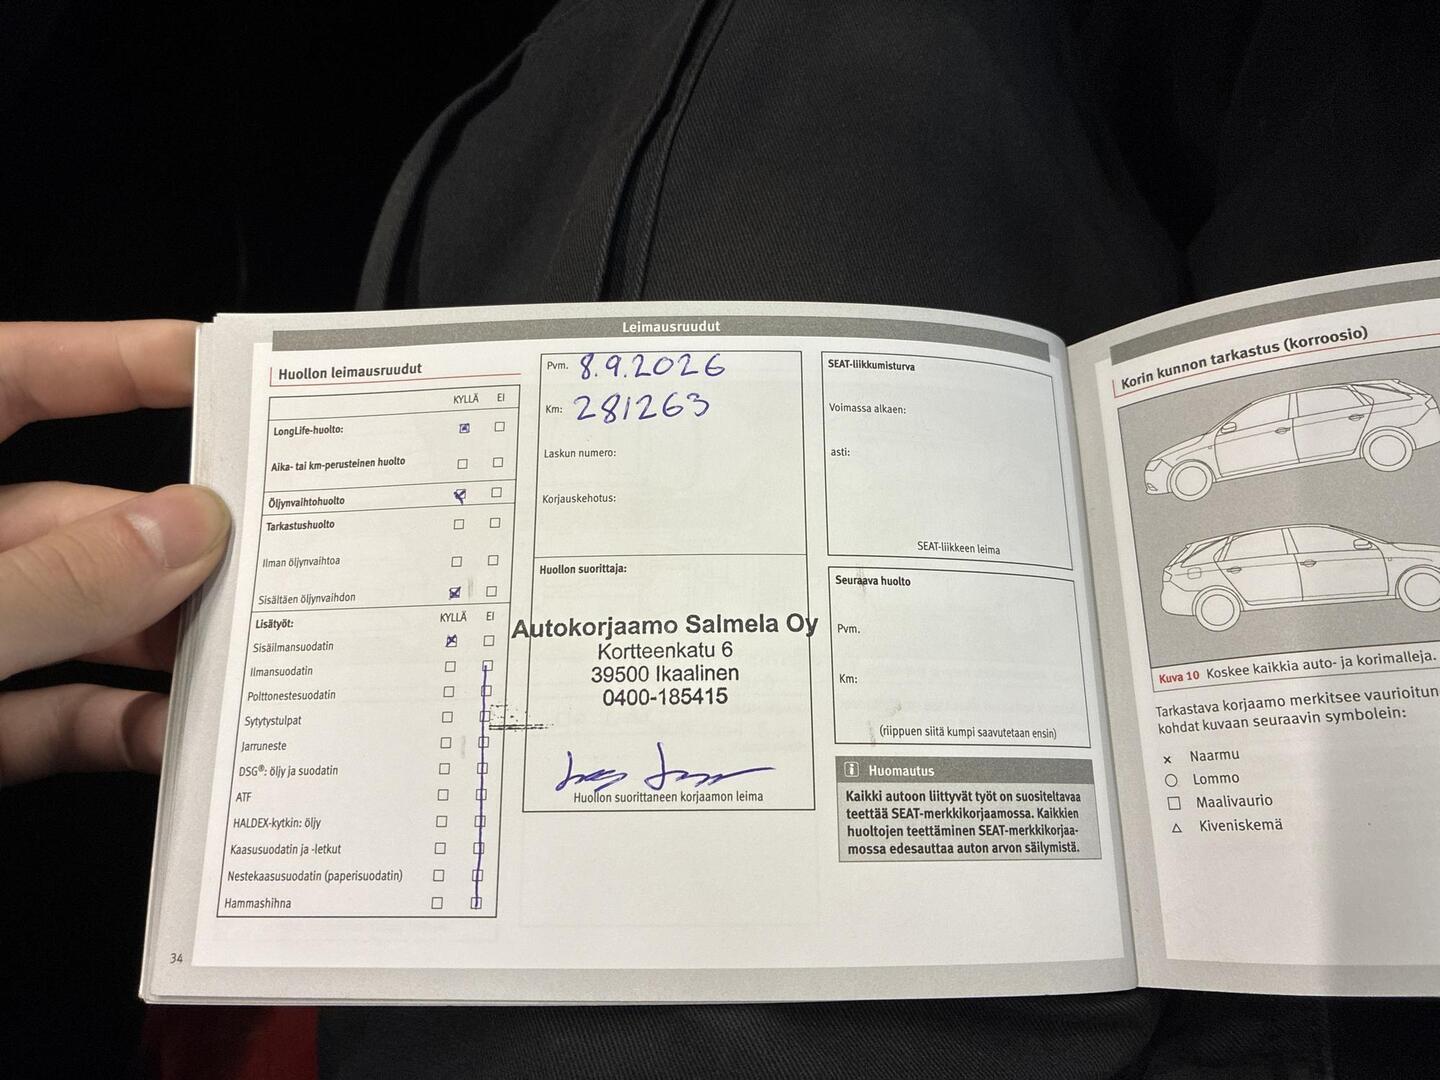 Leimausruudut
Huollon leimausruudut
KYLLÄ EI
LongLife-huolto:
Aika- tai km-perusteinen huolto
Öljynvaihtohuolto
Tarkastushuolto
Ilman öljynvaihtoa
Sisältäen öljynvaihdon
Lisätyöt: KYLLÄ EI
Sisäilmansuodatin
Ilmansuodatin
Polttonestesuodatin
Sytytystulpat
Jarruneste
DSG®: öljy ja suodatin
ATF
HALDEX-kytkin: öljy
Kaasusuodatin ja -letkut
Nestekaasusuodatin (paperisuodatin)
Hammashihna
34
Pvm. 8.9.2026
Km: 281263
Laskun numero:
Korjauskehotus:
Huollon suorittaja:
Autokorjaamo Salmela Oy
Kortteenkatu 6
39500 Ikaalinen
0400-185415
Huollon suorittaneen korjaamon leima
SEAT-liikkumisturva
Voimassa alkaen:
asti:
SEAT-liikkeen leima
Seuraava huolto
Pvm.
Km:
(riippuen siitä kumpi saavutetaan ensin)
i Huomautus
Kaikki autoon liittyvät työt on suositeltavaa
teettää SEAT-merkkikorjaamossa. Kaikkien
huoltojen teettäminen SEAT-merkkikorjaa-
mossa edesauttaa auton arvon säilymistä.
Korin kunnon tarkastus (korroosio)
Kuva 10 Koskee kaikkia auto- ja korimalleja.
Tarkastava korjaamo merkitsee vaurioitun
kohdat kuvaan seuraavin symbolein:
Naarmu
Lommo
Maalivaurio
Kiveniskemä